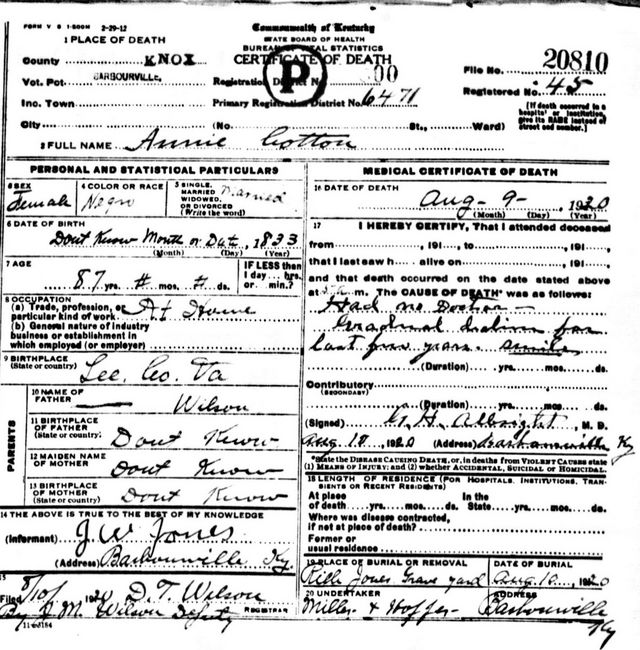 FORM V S 1-500M 2-29-12
Commonwealth of Kentucky
STATE BOARD OF HEALTH
BUREAU VITAL STATISTICS
CERTIFICATE OF DEATH
P
1 PLACE OF DEATH
County KNOX
Vot. Pct. BARBOURVILLE,
Inc. Town
City (No. St., Ward)
Registration District No. 00
Primary Registration District No. 6471
File No. 20810
Registered No. 45
[If death occurred in a hospital or institution, give its NAME instead of street and number.]
2 FULL NAME Annie Cotton
PERSONAL AND STATISTICAL PARTICULARS
3 SEX Female
4 COLOR OR RACE Negro
5 SINGLE, MARRIED, WIDOWED, OR DIVORCED (Write the word) Married
6 DATE OF BIRTH
Dont Know Month or Date, 1833
(Month) (Day) (Year)
7 AGE
87 yrs. # mos. # ds.
IF LESS then 1 day hrs. or min.?
8 OCCUPATION
(a) Trade, profession, or particular kind of work At Home
(b) General nature of industry business or establishment in which employed (or employer)
9 BIRTHPLACE
(State or country) Lee Co. Va
PARENTS
10 NAME OF FATHER — Wilson
11 BIRTHPLACE OF FATHER (State or country) Dont Know
12 MAIDEN NAME OF MOTHER Dont Know
13 BIRTHPLACE OF MOTHER (State or country) Dont Know
14 THE ABOVE IS TRUE TO THE BEST OF MY KNOWLEDGE
(Informant) J. W. Jones
(Address) Barbourville Ky
15
Filed 8/10/ 1920 D. T. Wilson
REGISTRAR
By J M. Wilson Deputy
11-6-3184
MEDICAL CERTIFICATE OF DEATH
16 DATE OF DEATH
Aug - 9 -, 1920
(Month) (Day) (Year)
17 I HEREBY CERTIFY, That I attended deceased
from , 191 , to , 191 ,
that I last saw h alive on , 191 ,
and that death occurred on the date stated above
at m. The CAUSE OF DEATH* was as follows:
Had no Doctor -
Gradual decline for
last few years. senile
(Duration) yrs. mos. ds.
Contributory
(SECONDARY)
(Duration) yrs. mos. ds.
(Signed) H. Albright, M. D.
Aug 10, 1920 (Address) Ky
*State the DISEASE CAUSING DEATH, or, in deaths from VIOLENT CAUSES state (1) MEANS OF INJURY; and (2) whether ACCIDENTAL, SUICIDAL or HOMICIDAL.
18 LENGTH OF RESIDENCE (FOR HOSPITALS, INSTITUTIONS, TRANSIENTS OR RECENT RESIDENTS)
At place of death yrs. mos. ds. In the State yrs. mos. ds.
Where was disease contracted, if not at place of death?
Former or usual residence
19 PLACE OF BURIAL OR REMOVAL
Jones Grave yard
DATE OF BURIAL
Aug 10, 1920
20 UNDERTAKER
Miller & Hoffer
ADDRESS
Barbourville
Ky